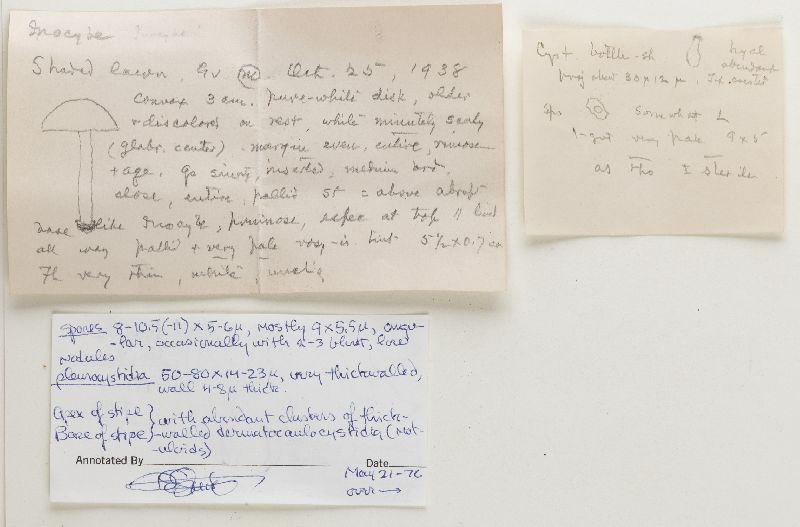 Inocybe
Shaded lawn, Gv. Oct. 25, 1938
convex 3 cm. pure-white disk, older
+ discolored on rest, white minutely scaly
(glabr. center) - margin even, entire,
+ age. gs sinuate, inserted, medium brd,
close, entire, pallid St = above abrupt
base like Inocybe, pruinose, espec at top
all way pallid + very pale rosy-is. tint 5½ x 0.7 cm
Fl very thin, white,
Cyst bottle-sh hyal
abundant
proj about 30 x 12 µ,
Sps somewhat L
1-gut very pale 9 x 5
as tho ± sterile
spores 8-10.5(-11) x 5-6µ, mostly 9 x 5.5µ, angu-
-lar, occasionally with 2-3 blunt, low
nodules
pleurocystidia 50-80 x 14-23µ, very thickwalled,
wall 4-8µ thick.
Apex of stipe } with abundant clusters of thick-
Base of stipe } -walled dermatocaulocystidia (met-
-uloids)
Annotated By Date
May 21-76
over →